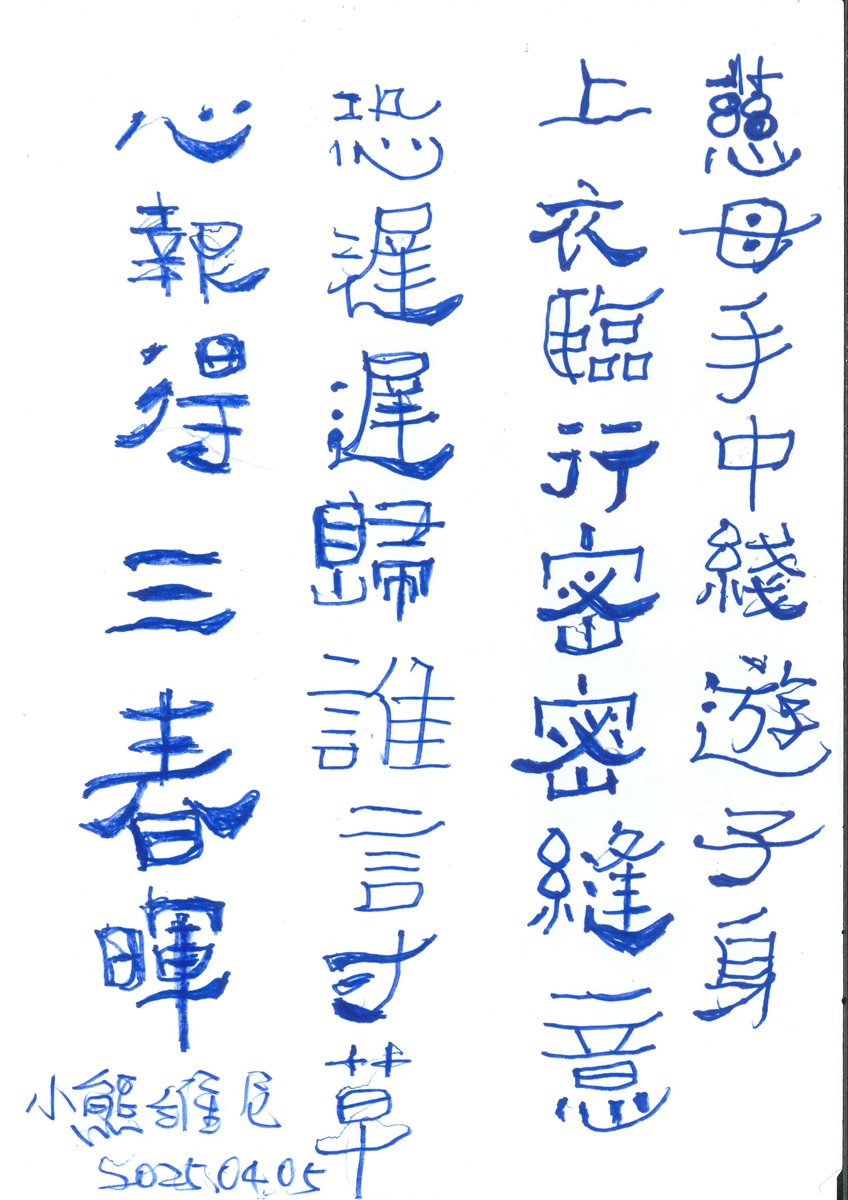 慈母手中綫遊子身
上衣臨行密密縫意
恐遲遲歸誰言寸草
心報得三春暉
小熊維尼
2025.04.05